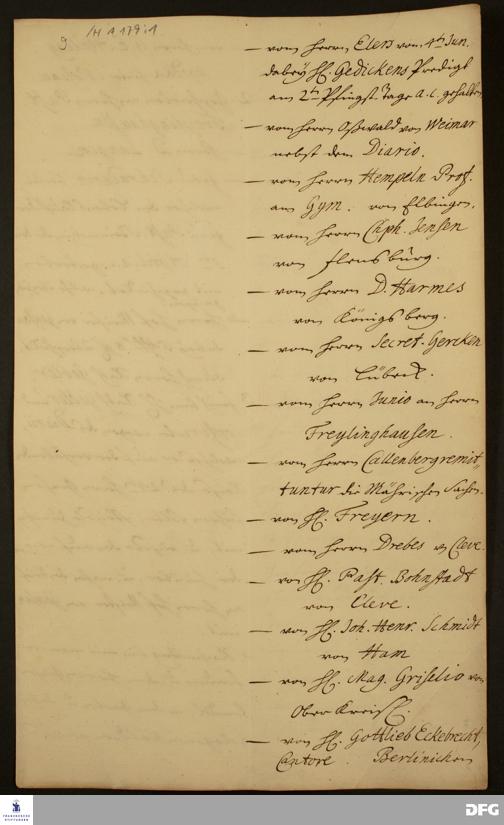 9
H A 179:1
— vom Herrn Elers vom 4ten Jun.
dabey H. Gedickens Predigt
am 2ten Pfingst Tage a. c. gehalten
— vom Herrn Oßwald von Weimar
nebst dem Diario.
— vom Herrn Hempeln Prof.
am Gym. von Elbingen.
— vom Herrn Caph. Jensen
von Flensburg.
— vom Herrn D. Harmes
von Königsberg.
— vom Herrn Secret. Gercken
von Lübeck.
— vom Herrn Junio an Herrn
Freylinghausen.
— vom Herrn Callenberg remit„
tuntur die Mährischen Sachen.
— von H. Freyern.
— vom Herrn Drebes v. Cleve.
— von H. Past. Bohnstädt
von Cleve.
— von H. Joh. Henr. Schmidt
von Ham
— von H. Mag. Griselio von
— von H. Gottlieb Eckebrecht,
Cantore. Berlinichen
FRANCKESCHE
STIFTUNGEN
DFG